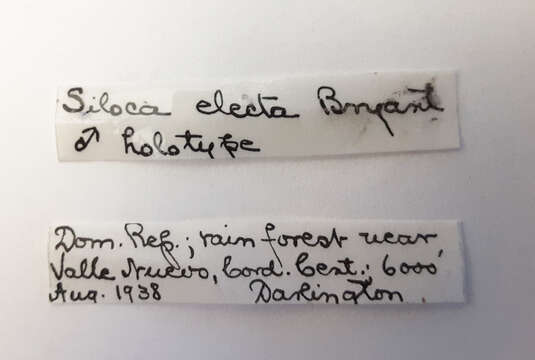 Siloca electa Bryant
♂ holotype
Dom. Rep.; rain forest near
Valle Nuevo, Cord. Cent.; 6000'
Aug. 1938 Darlington